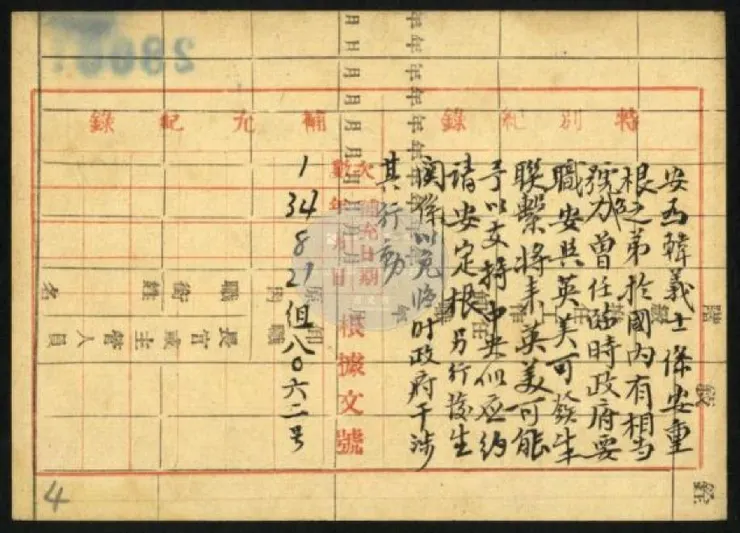 特別紀錄
安為韓義士係安重
根之弟於國內有相當
號召力曾任臨時政府要
職安與英美可發生
聯繫將來英美可能
予以支持中央似應約
請安定根另行發生
關係以免臨時政府干涉
其行動
補充紀錄
次數 補充日期 年月日 根據文號
1 34 8 21 組八〇六二号
長官或
主管人員
職銜
姓名
4